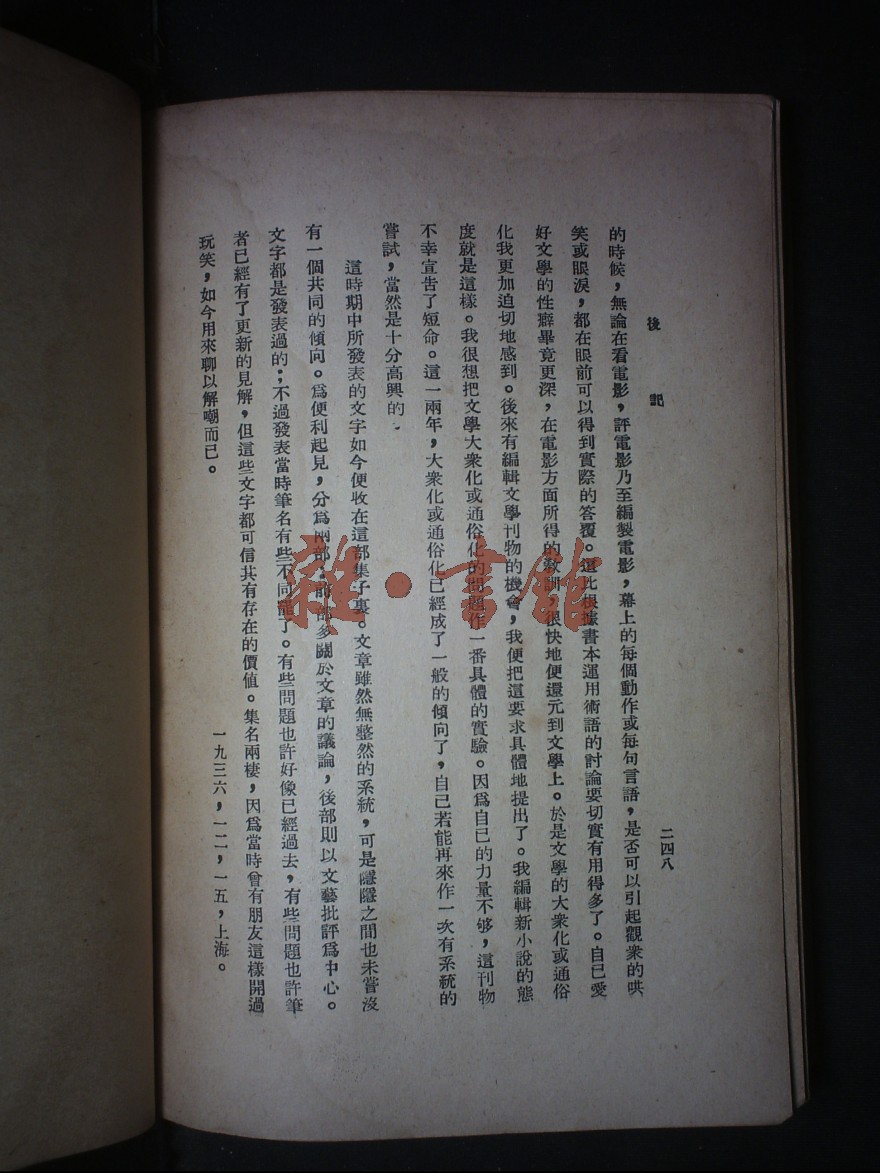 後記
二四八
的時候，無論在看電影，評電影乃至編製電影，幕上的每個動作或每句言語，是否可以引起觀衆的哄
笑或眼淚，都在眼前可以得到實際的答覆。這比根據書本運用術語的討論要切實有用得多了。自己愛
好文學的性癖畢竟更深，在電影方面所得的敎訓，很快地便還元到文學上。於是文學的大衆化或通俗
化我更加迫切地感到。後來有編輯文學刊物的機會，我便把這要求具體地提出了。我編輯新小說的態
度就是這樣。我很想把文學大衆化或通俗化的問題作一番具體的實驗。因爲自已的力量不够，這刊物
不幸宣告了短命。這一兩年，大衆化或通俗化已經成了一般的傾向了，自己若能再來作一次有系統的
嘗試，當然是十分高興的。
這時期中所發表的文字如今便收在這部集子裏。文章雖然無整然的系統，可是隱隱之間也未嘗沒
有一個共同的傾向。爲便利起見，分爲兩部：前部多關於文章的議論，後部則以文藝批評爲中心。
文字都是發表過的；不過發表當時筆名有些不同罷了。有些問題也許好像已經過去，有些問題也許筆
者已經有了更新的見解，但這些文字都可信其有存在的價值。集名兩棲，因爲當時曾有朋友這樣開過
玩笑，如今用來聊以解嘲而已。
一九三六，一二，一五，上海。
雜·書館